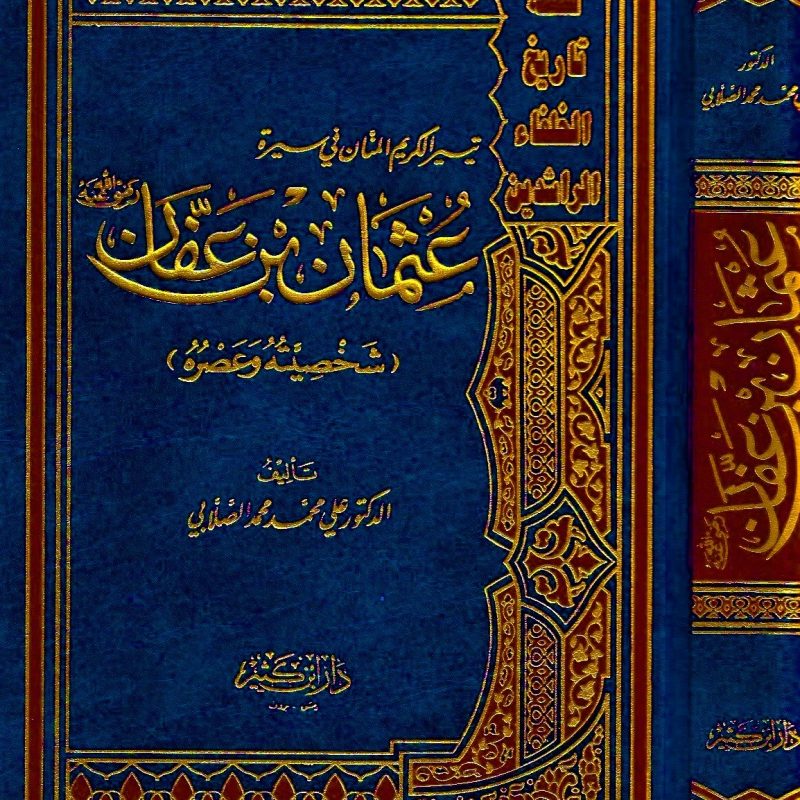 تاريخ
الخلفاء
الراشدين
تيسير الكريم المنان في سيرة
عُثْمَان بْن عَفَّان رضي الله عنه
(شَخْصِيَّتُه وَعَصْرُه)
تأليف
الدكتور علي محمّد محمد الصَّلاَّبي
دار ابن كثير
دمشق - بيروت
الدكتور
محمد محمد الصلابي
عُثْمَان بْن عَفَّان رضي الله عنه
دار ابن كثير